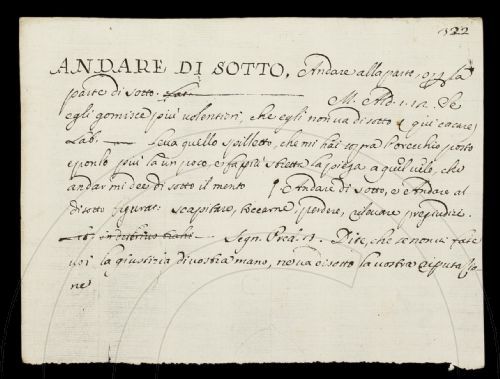 322
ANDARE DI SOTTO. Andare alla parte, o p la
parte di sotto. Lat.
M. Ald. 1. 12. Se
egli gomisce più volentieri, che egli non va di sotto
Lab. Leva quello spilletto, che mi hai sopra l'orecchio posto
e ponlo più là un poco, e fa più stretta la piega a quel velo, che
andar mi dee di sotto il mento ¶ Andare di sotto, e Andare al
disotto figurat: scapitare, toccarne, perdere, rilevare pregiudizi.
Lat. Segn. Pred. Dite, che se non vi fate
voi la giustizia di vostra mano, ne va di sotto la vostra riputazio
ne